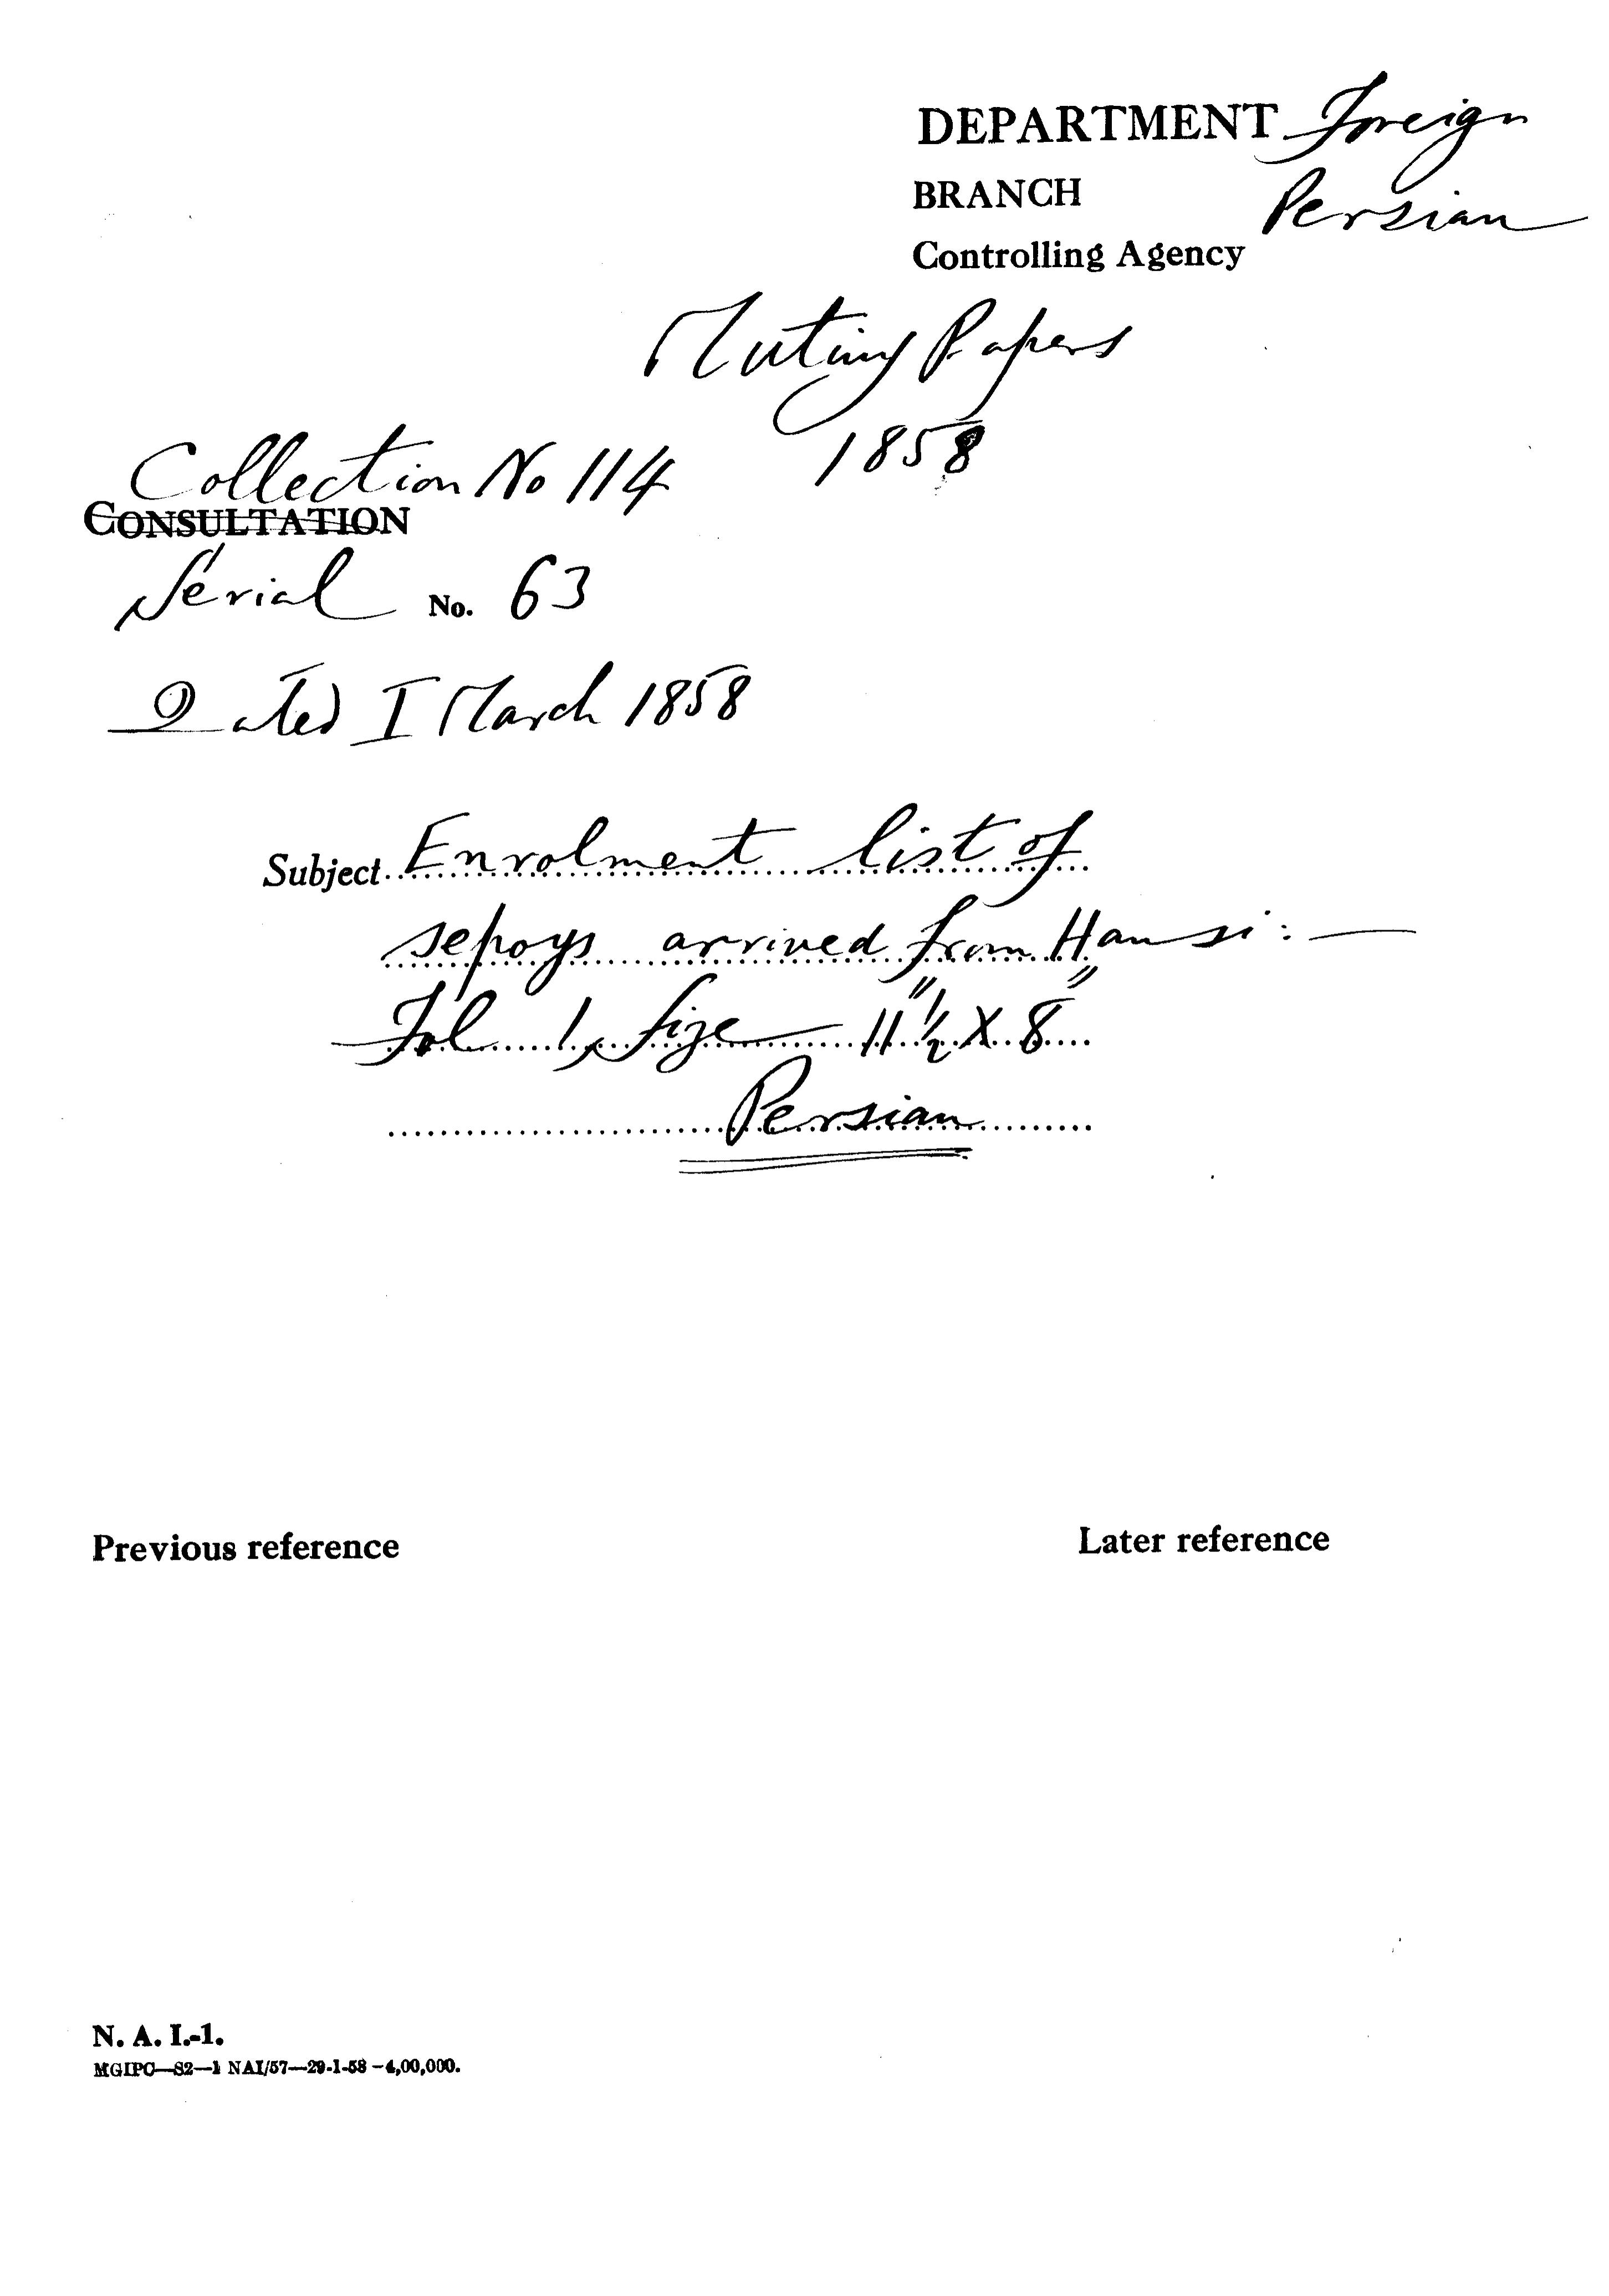 DEPARTMENT Foreign
BRANCH Persian
Controlling Agency
Mutiny Papers
1858
Collection No 114
CONSULTATION
Serial No. 63
Dated I March 1858
Subject Enrolment list of
sepoys arrived from Hansi :—
Fol 1, Size 11"½ X 8"
Persian
Previous reference
Later reference
N. A. I.-1.
MGIPC—S2—1 NAI/57—29-1-58—4,00,000.